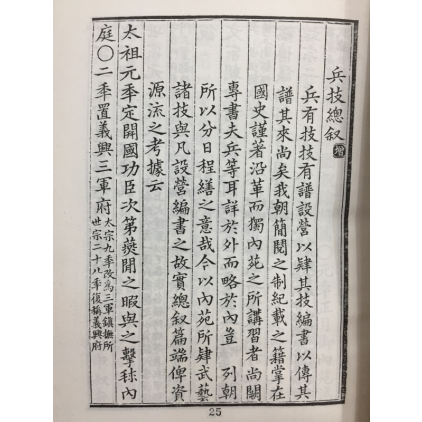 兵技總叙 增
兵有技技有譜設營以肄其技編書以傳其
譜其來尚矣我朝簡閱之制紀載之籍掌在
國史謹著沿革而獨內苑之所講習者尚闕
專書夫兵等耳詳於外而略於內豈 列朝
所以分日程繕之意哉今以內苑所肄武藝
諸技與凡設營編書之故實總叙篇端俾資
源流之考據云
太祖元季定開國功臣次第燕閒之暇與之擊毬內
庭〇二季置義興三軍府 太宗九季改爲三軍鎭撫所
世宗二十八季復稱義興府
25